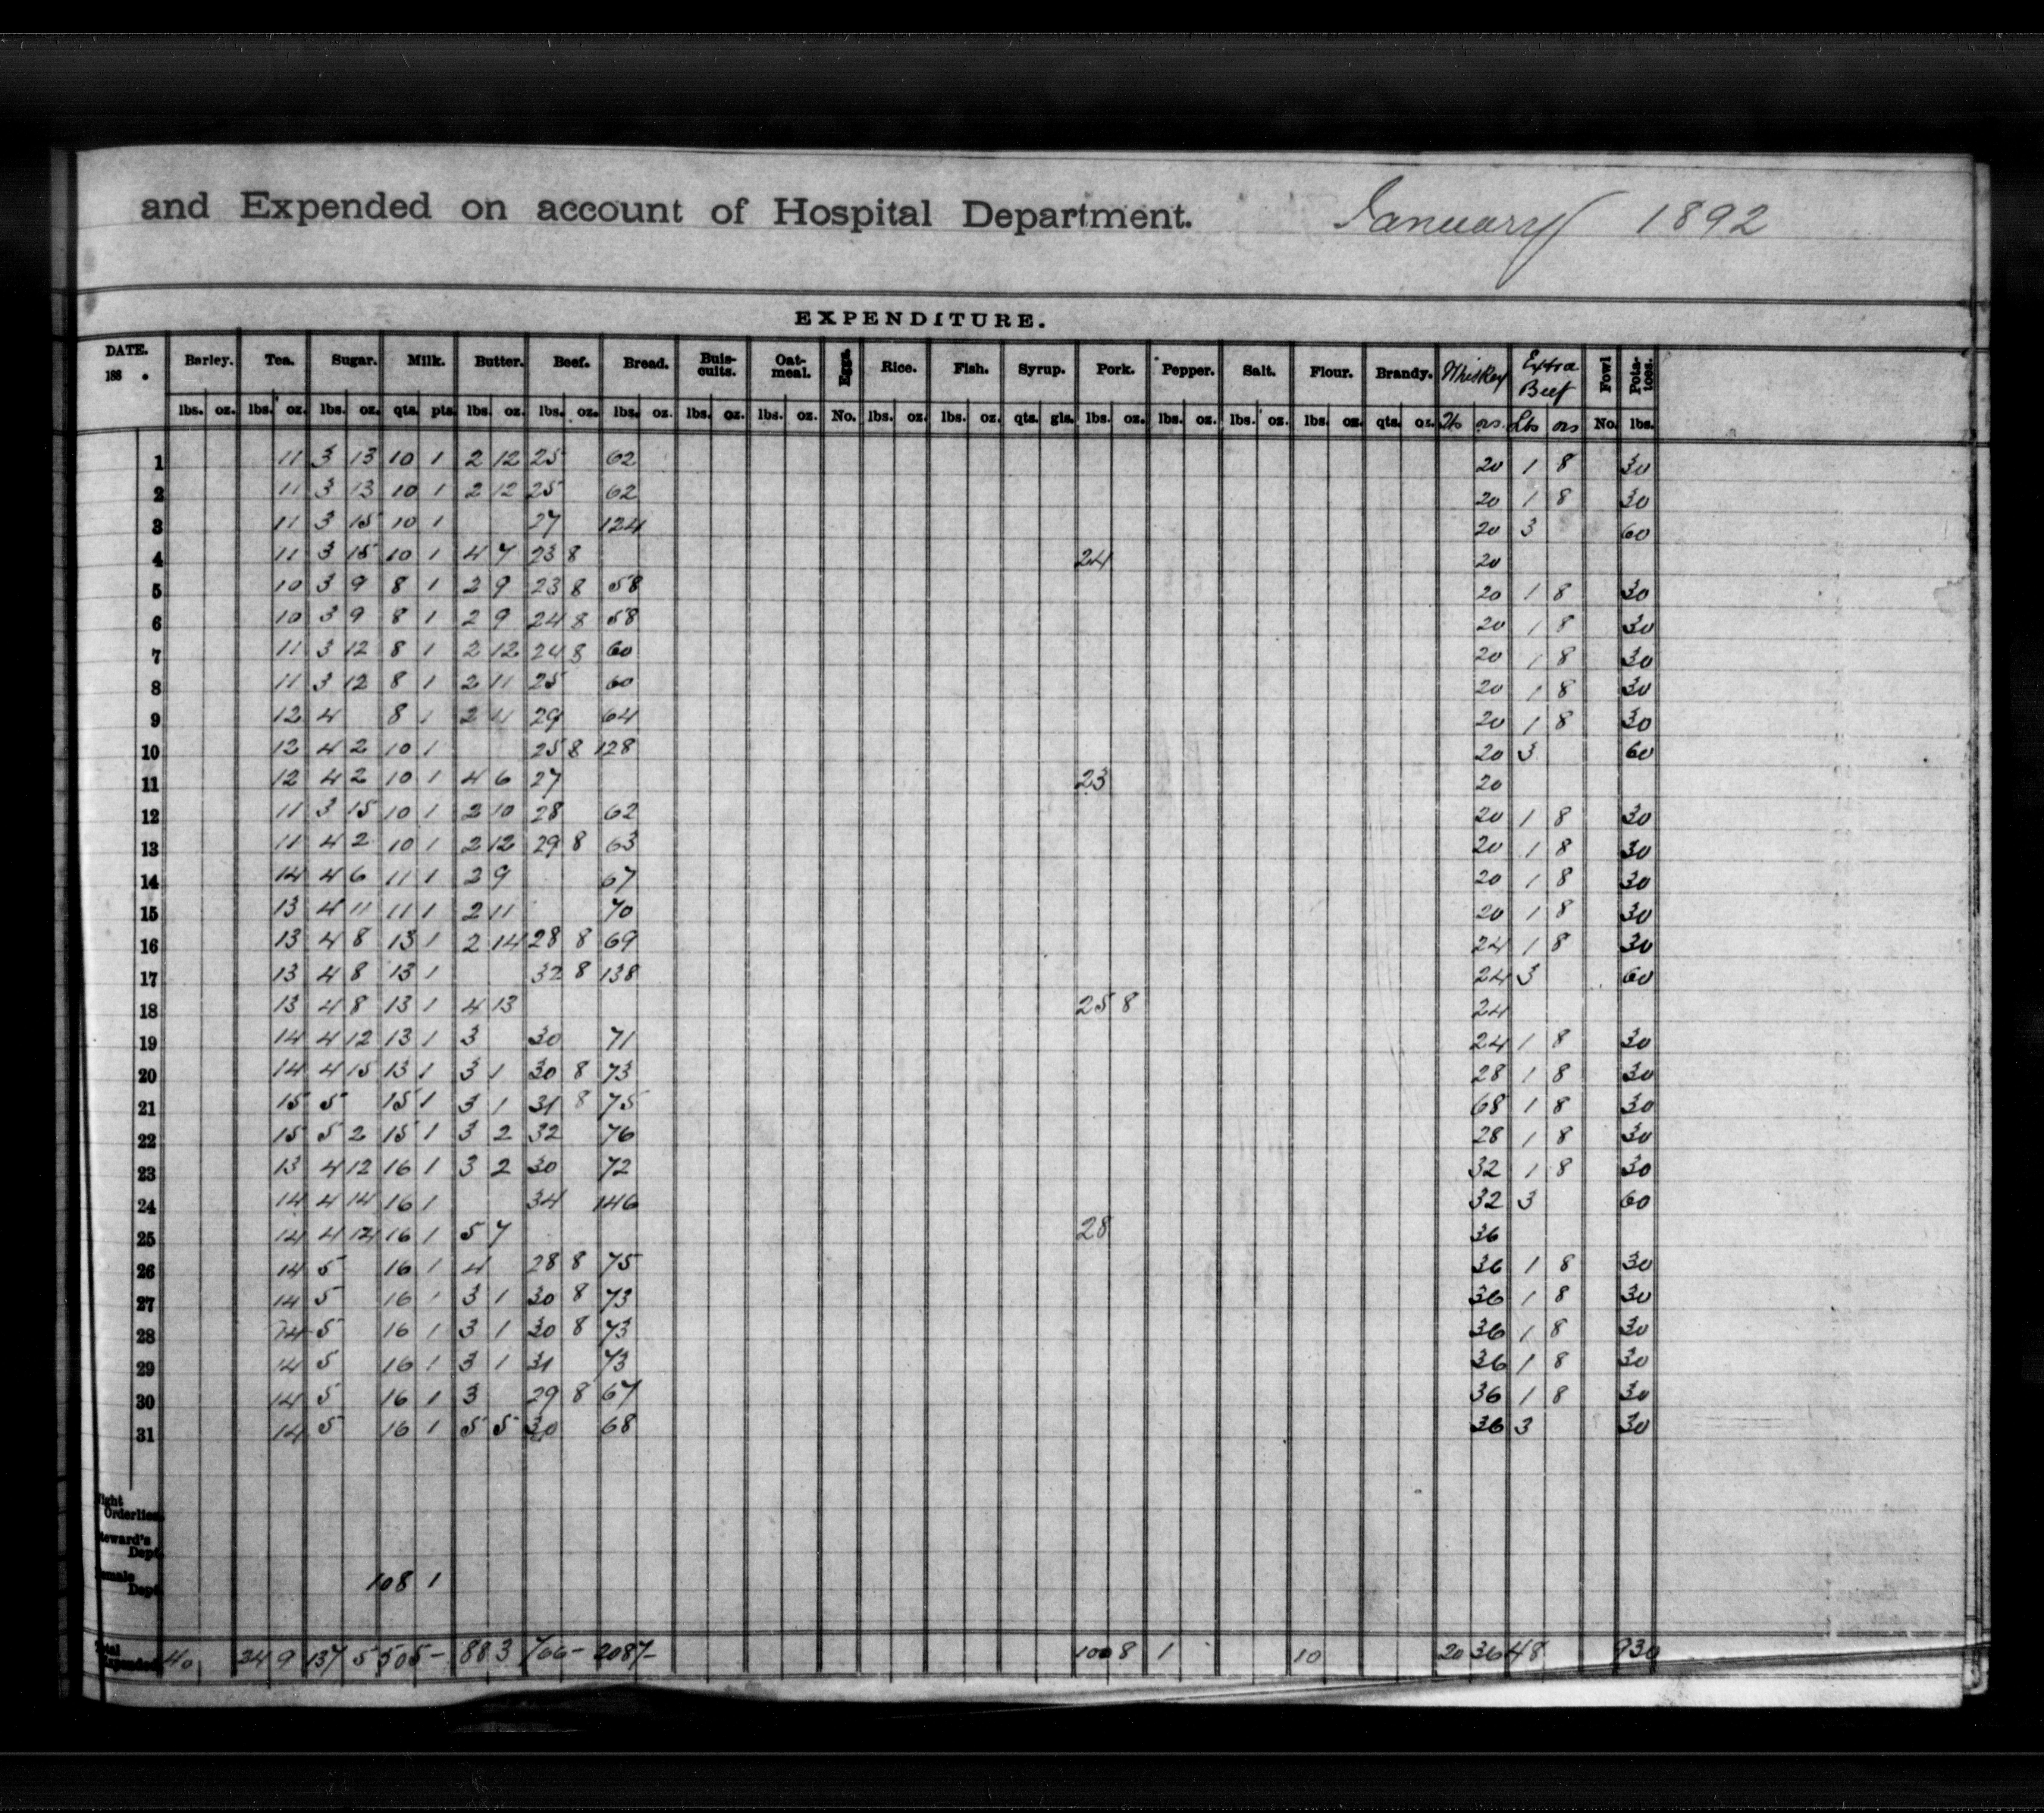 and Expended on account of Hospital Department. January 1892
EXPENDITURE.
DATE. 188 . Barley. Tea. Sugar. Milk. Butter. Beef. Bread. Buis-cuits. Oat-meal. Eggs. Rice. Fish. Syrup. Pork. Pepper. Salt. Flour. Brandy. Whiskey Extra Beef Fowl Pota-toes.
lbs. oz. lbs. oz. lbs. oz. qts. pts. lbs. oz. lbs. oz. lbs. oz. lbs. oz. lbs. oz. No. lbs. oz. lbs. oz. qts. gls. lbs. oz. lbs. oz. lbs. oz. lbs. oz. qts. oz. lbs ozs. Lbs ozs No. lbs.
1 11 3 13 10 1 2 12 25 62 20 1 8 30
2 11 3 13 10 1 2 12 25 62 20 1 8 30
3 11 3 15 10 1 27 124 20 3 60
4 11 3 15 10 1 4 7 23 8 24 20
5 10 3 9 8 1 2 9 23 8 58 20 1 8 30
6 10 3 9 8 1 2 9 24 8 58 20 1 8 30
7 11 3 12 8 1 2 12 24 8 60 20 1 8 30
8 11 3 12 8 1 2 11 25 60 20 1 8 30
9 12 4 8 1 2 11 29 64 20 1 8 30
10 12 4 2 10 1 25 8 128 20 3 60
11 12 4 2 10 1 4 6 27 23 20
12 11 3 15 10 1 2 10 28 62 20 1 8 30
13 11 4 2 10 1 2 12 29 8 63 20 1 8 30
14 14 4 6 11 1 2 9 67 20 1 8 30
15 13 4 11 11 1 2 11 70 20 1 8 30
16 13 4 8 13 1 2 14 28 8 69 24 1 8 30
17 13 4 8 13 1 32 8 138 24 3 60
18 13 4 8 13 1 4 13 25 8 24
19 14 4 12 13 1 3 30 71 24 1 8 30
20 14 4 15 13 1 3 1 30 8 73 28 1 8 30
21 15 5 15 1 3 1 31 8 75 68 1 8 30
22 15 5 2 15 1 3 2 32 76 28 1 8 30
23 13 4 12 16 1 3 2 30 72 32 1 8 30
24 14 4 14 16 1 34 146 32 3 60
25 14 4 14 16 1 5 7 28 36
26 14 5 16 1 4 28 8 75 36 1 8 30
27 14 5 16 1 3 1 30 8 73 36 1 8 30
28 14 5 16 1 3 1 30 8 73 36 1 8 30
29 14 5 16 1 3 1 31 73 36 1 8 30
30 14 5 16 1 3 29 8 67 36 1 8 30
31 14 5 16 1 5 5 30 68 36 3 30
Orderlies
Dept.
Dept. 108 1
40 24 9 137 5 505 - 88 3 766 - 2087 - 100 8 1 10 20 36 48 930